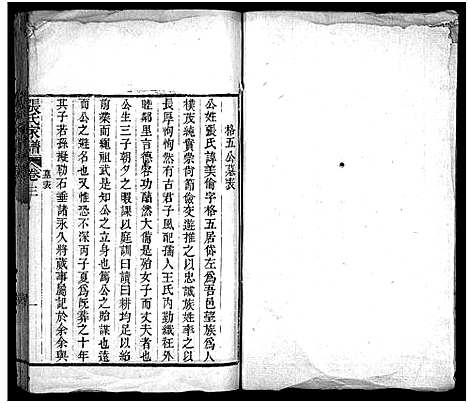 格五公墓表
公姓張氏諱美倫字格五居岱左為吾邑望族為人
樸茂純實崇尚節儉交遊推之以長族姓奉之以
長厚恂恂然有古君子風配孺人王氏内勤織紝外
睦鄰里言德容功藹然大備是殆女子而丈夫者也
公生三子朝夕之暇課以庭訓曰讀曰耕均能
前業而繩祖武是知公之立身也篤公之貽謀也遠
而公之避名也又惟恐不深丙子夏為既葬之十年
其子若孫擬勒石垂諸永久將蕆事屬記於余余與
張氏家譜
卷三
墓表
一